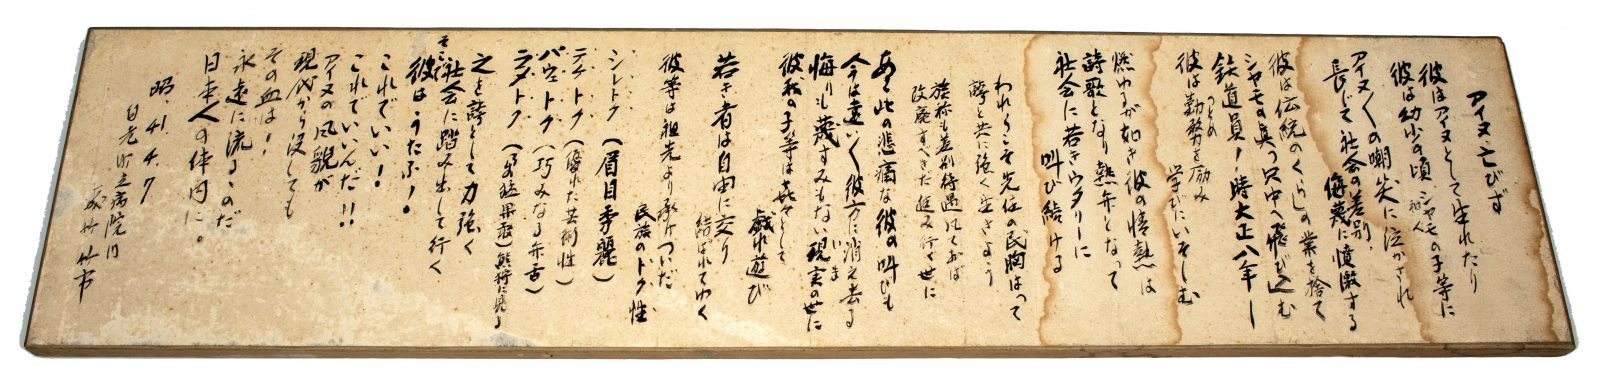 アイヌ亡びず
彼はアイヌとして生れたり
彼は幼少の頃、シャモの子等に
和人
アイヌ〱の嘲笑に泣かされ
長じて社会の差別、
侮蔑に憤激する
彼は伝統のくらしの業を捨て
シャモの真っ只中へ飛び込む
鉄道員！時大正八年ー
彼は勤務を励み
つとめ
学びにいそしむ
燃ゆるが如き彼の情熱は
詩歌となり熱弁となって
社会に若きウタリーに
叫び続ける
われらこそ先住の民胸はって
誇と共に強く生きよう
族称も差別待遇
改廃すべきだ進み行く世に
あゝ此の悲痛な彼の叫びも
今は遠い〱彼方に消え去る
侮りも蔑すみもない現実の世に
いま
彼、私の子等は嬉々として
戯れ遊び
若き者は自由に交り
結ばれてゆく
彼等は祖先より承けついだ
民族のトク性
シレトク（眉目秀麗）
テケトク（優れた芸術性）
パウェトク（巧みなる弁舌）
ラメトク（勇猛果敢）熊狩に見る
之を誇として力強く
社会に踏み出して行く
そこで
彼は、うたふ！
これでいい！
これでいいんだ！！
アイヌの風貌が
現代から没しても
その血は！
永遠に流るゝのだ
日本人の体内に。
昭、41、4、7
白老町立病院内